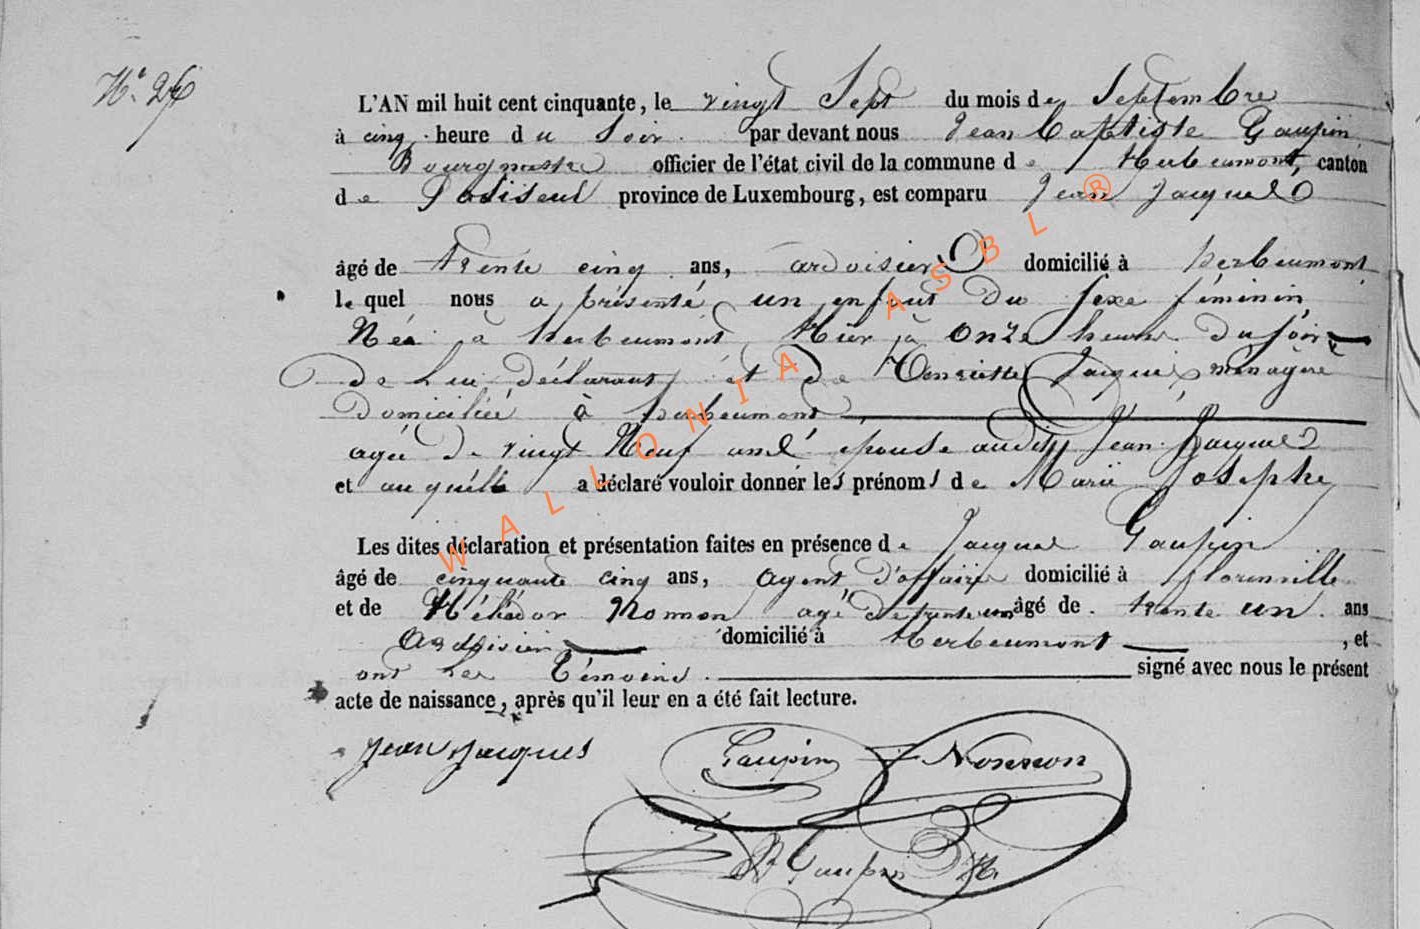 N° 26
L'AN mil huit cent cinquante, le vingt Sept du mois de Septembre
à cinq heure du Soir. par devant nous Jean Baptiste Gaupin
Bourgmestre officier de l'état civil de la commune de Herbeumont, canton
de Paliseul province de Luxembourg, est comparu Jean Jacques
âgé de trente cinq ans, ardoisier domicilié à Herbeumont
lequel nous a présenté un enfant du sexe féminin
Née à herbeumont hier à onze heures du soir
de Lui déclarant et de Henriette Jacques ménagère
Domiciliée à herbeumont
agée de vingt Neuf ans épouse audit Jean Jacques
et auquelle a déclaré vouloir donner les prénoms de Marie Josephe
Les dites déclaration et présentation faites en présence de Jacques Gaupin
âgé de cinquante cinq ans, agent d'affaire domicilié à florenville
et de Héliodor Nonnon agé de trente un âgé de trente un ans
Ardoisier domicilié à herbeumont , et
ont les Témoins signé avec nous le présent
acte de naissance, après qu'il leur en a été fait lecture.
Jean Jacques Gaupin Nonnon
JB Gaupin
WALLONIA ASBL ®